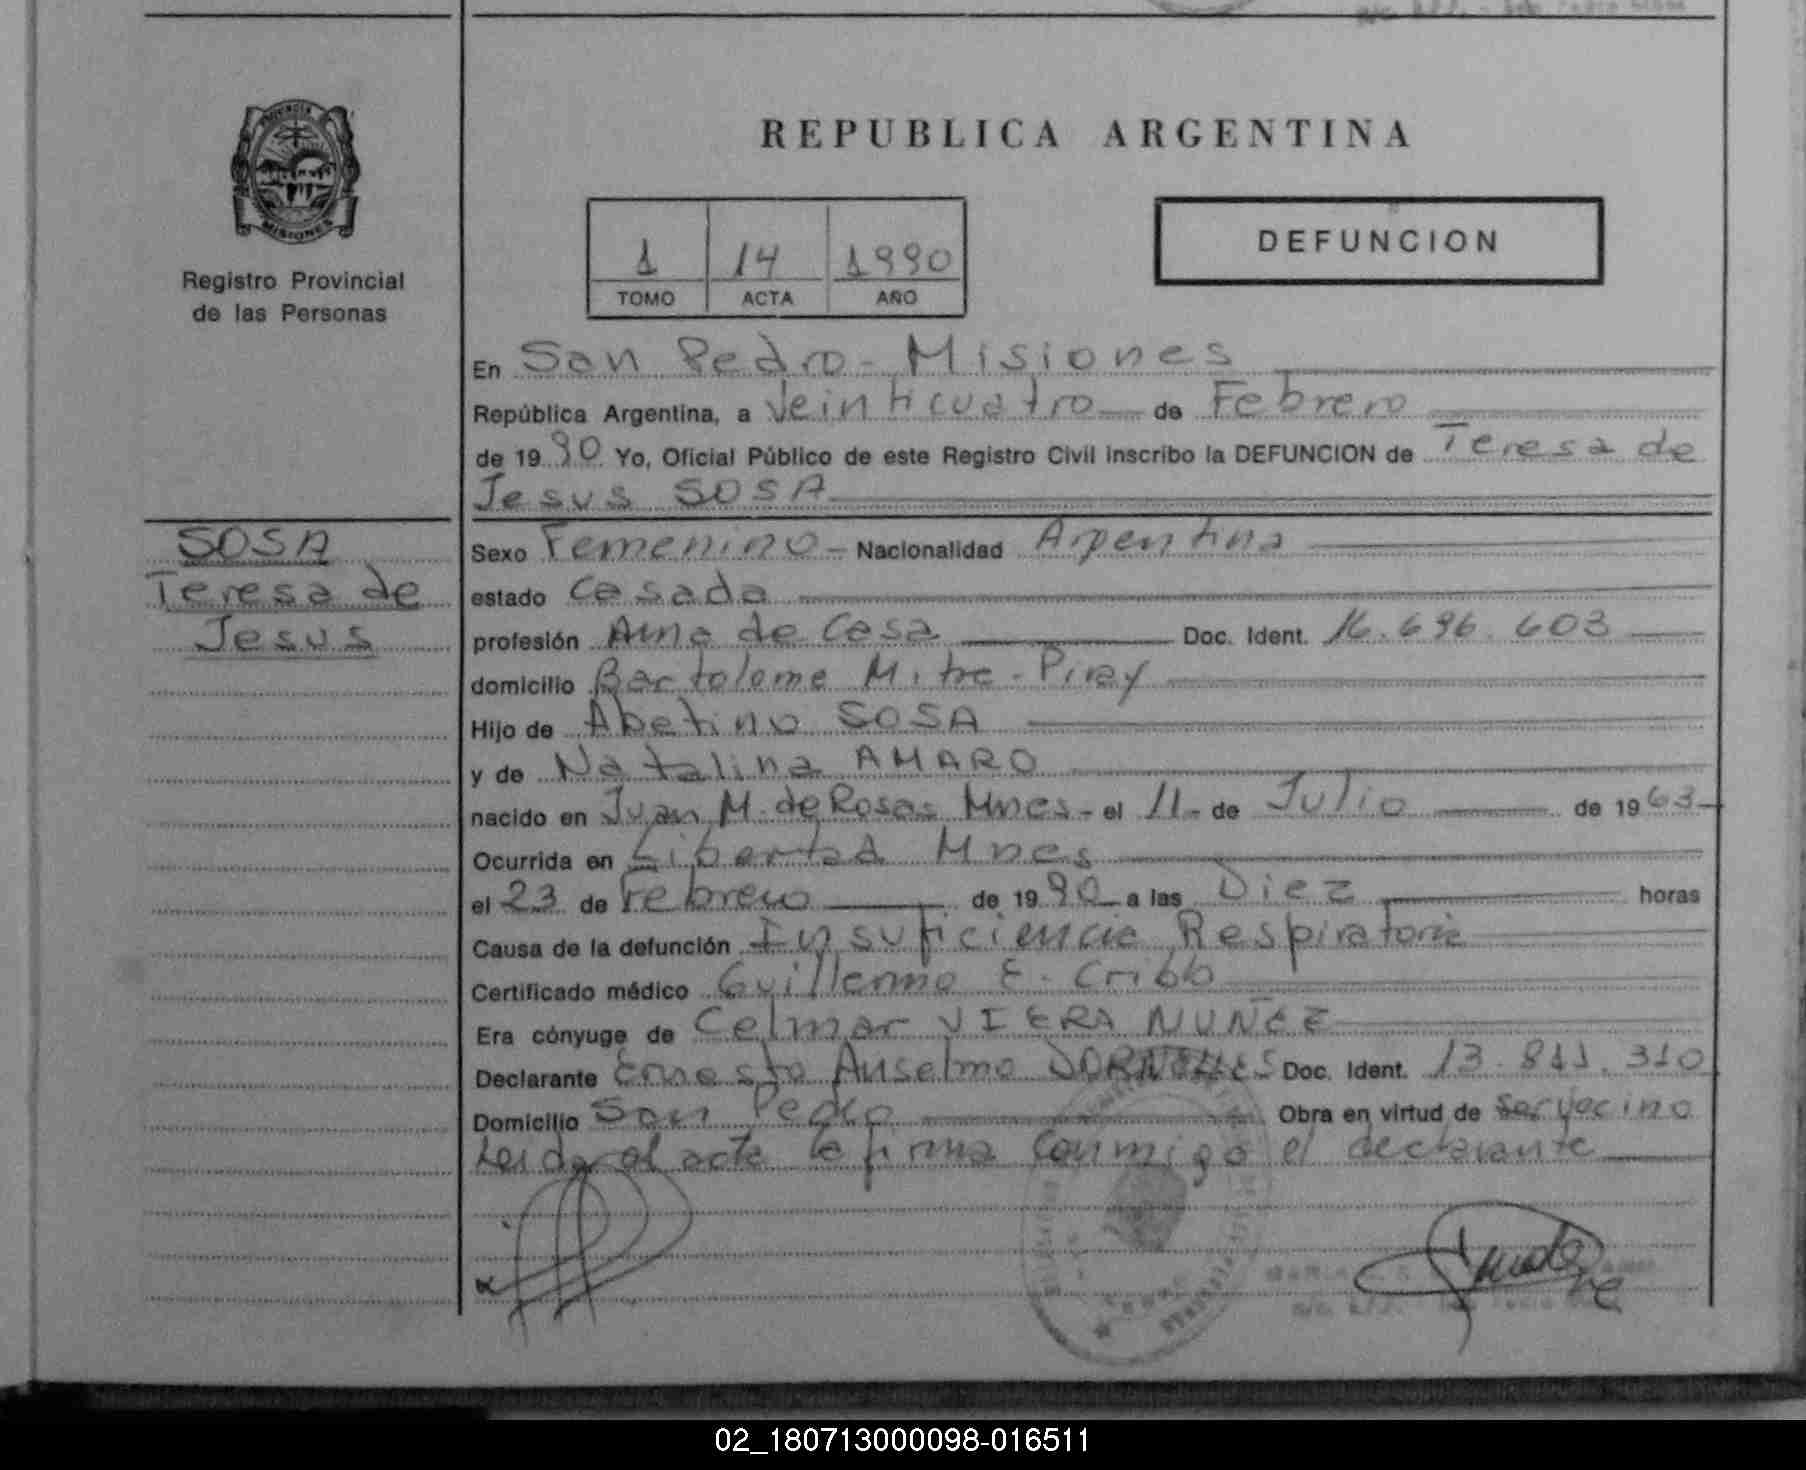 PROVINCIA
MISIONES
Registro Provincial
de las Personas
REPUBLICA ARGENTINA
1 14 1990
TOMO ACTA AÑO
DEFUNCION
En San Pedro - Misiones
República Argentina, a Veinticuatro de Febrero
de 1990 Yo, Oficial Público de este Registro Civil inscribo la DEFUNCION de Teresa de
Jesus SOSA
SOSA
Teresa de
Jesus
Sexo Femenino - Nacionalidad Argentina
estado Casada
profesión Ama de Casa Doc. Ident. 16.696.603
domicilio Bartolome Mitre - Piray
Hijo de Abetino SOSA
y de Natalina AMARO
nacido en Juan M. de Rosas Mnes - el 11 - de Julio de 1963
Ocurrida en Libertad Mnes
el 23 de Febrero de 1990 a las Diez horas
Causa de la defunción Insuficiencia Respiratoria
Certificado médico Guillermo E. Cribb
Era cónyuge de Celmar VIERA NUÑEZ
Declarante Ernesto Anselmo DORNELLES Doc. Ident. 13.811.310
Domicilio San Pedro Obra en virtud de Ser vecino
Leida el acta la firma conmigo el declarante
02_180713000098-016511